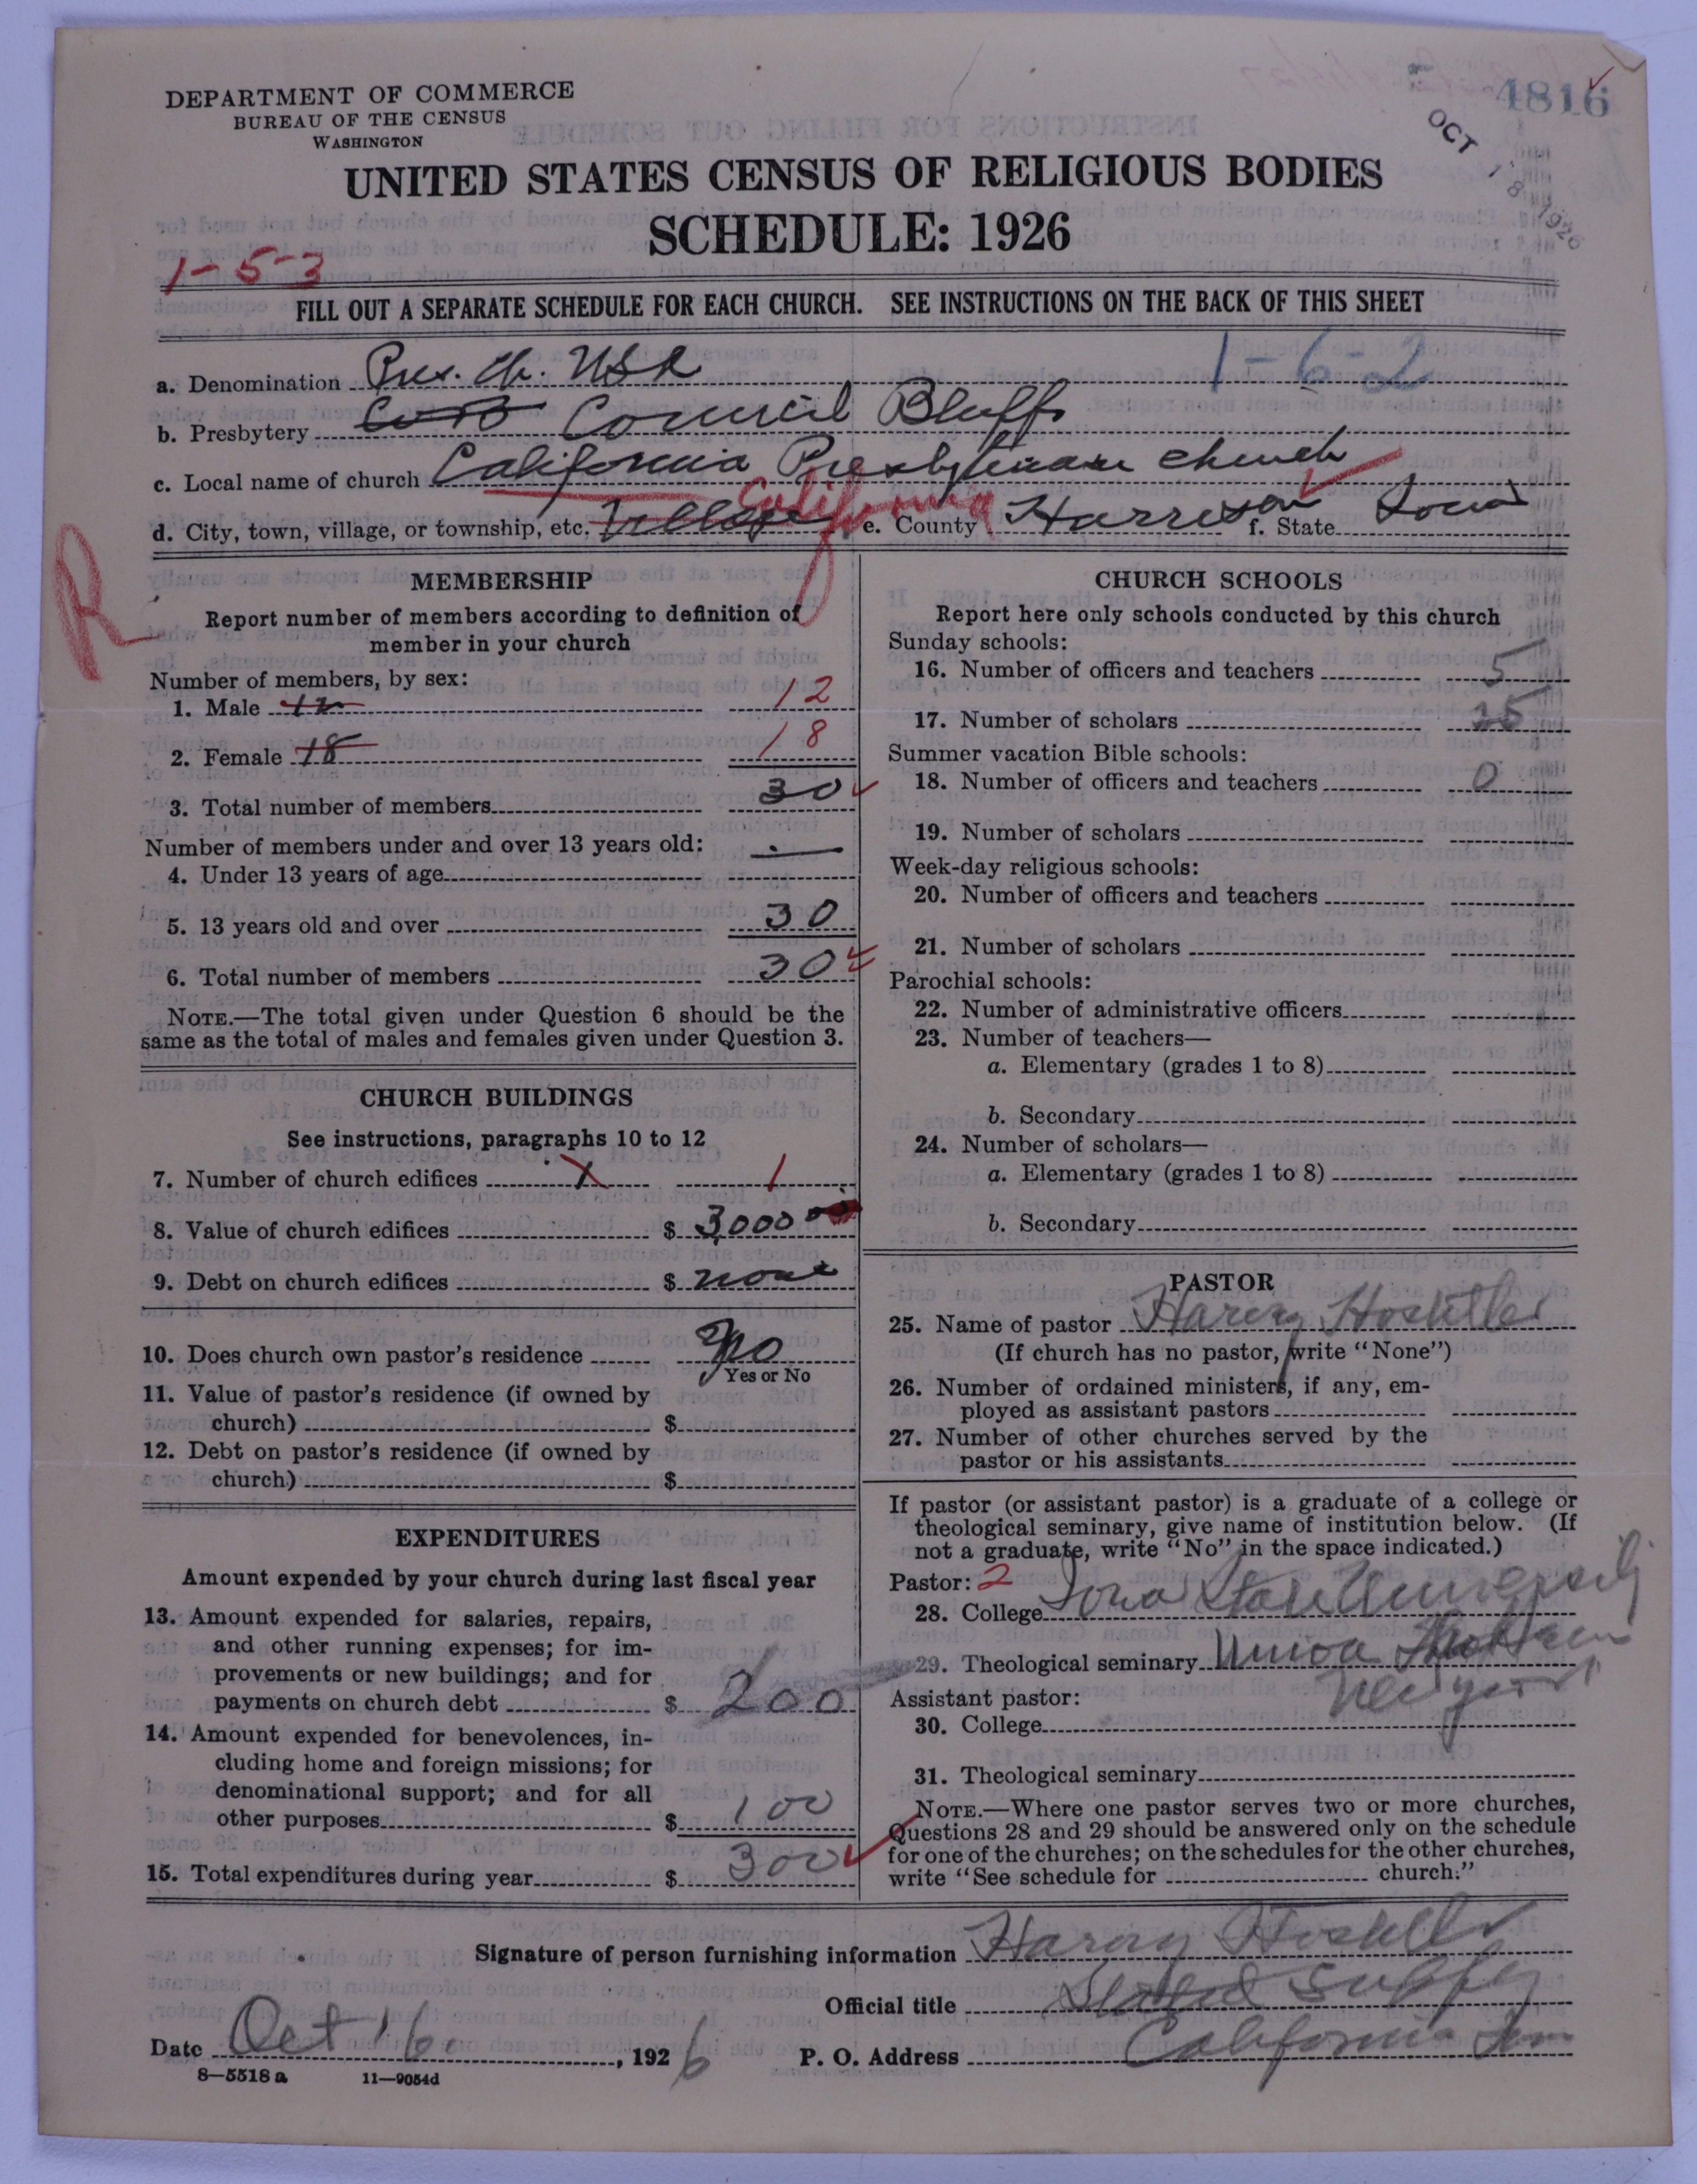 4816
OCT 18 1926
DEPARTMENT OF COMMERCE
BUREAU OF THE CENSUS
WASHINGTON
UNITED STATES CENSUS OF RELIGIOUS BODIES
SCHEDULE: 1926
1-5-3
FILL OUT A SEPARATE SCHEDULE FOR EACH CHURCH. SEE INSTRUCTIONS ON THE BACK OF THIS SHEET
a. Denomination Pres. Ch. USA 1-6-2
b. Presbytery Council Bluffs
c. Local name of church California Presbyterian church
d. City, town, village, or township, etc. Village California e. County Harrison f. State Iowa
R
MEMBERSHIP
Report number of members according to definition of
member in your church
Number of members, by sex:
1. Male 12 12
2. Female 18 18
3. Total number of members 30
Number of members under and over 13 years old:
4. Under 13 years of age
5. 13 years old and over 30
6. Total number of members 30
NOTE.—The total given under Question 6 should be the
same as the total of males and females given under Question 3.
CHURCH BUILDINGS
See instructions, paragraphs 10 to 12
7. Number of church edifices 1
8. Value of church edifices $ 3000
9. Debt on church edifices $ none
10. Does church own pastor's residence no
Yes or No
11. Value of pastor's residence (if owned by
church) $
12. Debt on pastor's residence (if owned by
church) $
EXPENDITURES
Amount expended by your church during last fiscal year
13. Amount expended for salaries, repairs,
and other running expenses; for im-
provements or new buildings; and for
payments on church debt $ 200
14. Amount expended for benevolences, in-
cluding home and foreign missions; for
denominational support; and for all
other purposes $ 100
15. Total expenditures during year $ 300
CHURCH SCHOOLS
Report here only schools conducted by this church
Sunday schools:
16. Number of officers and teachers 5
17. Number of scholars
Summer vacation Bible schools:
18. Number of officers and teachers 0
19. Number of scholars
Week-day religious schools:
20. Number of officers and teachers
21. Number of scholars
Parochial schools:
22. Number of administrative officers
23. Number of teachers—
a. Elementary (grades 1 to 8)
b. Secondary
24. Number of scholars—
a. Elementary (grades 1 to 8)
b. Secondary
PASTOR
25. Name of pastor Harry Hostetler
(If church has no pastor, write "None")
26. Number of ordained ministers, if any, em-
ployed as assistant pastors
27. Number of other churches served by the
pastor or his assistants
If pastor (or assistant pastor) is a graduate of a college or
theological seminary, give name of institution below. (If
not a graduate, write "No" in the space indicated.)
Pastor: 2
28. College Iowa State University
29. Theological seminary Union
New York
Assistant pastor:
30. College
31. Theological seminary
NOTE.—Where one pastor serves two or more churches,
Questions 28 and 29 should be answered only on the schedule
for one of the churches; on the schedules for the other churches,
write "See schedule for church."
Signature of person furnishing information Harry Hostetler
Official title Stated Supply
Date Oct 16, 1926 P. O. Address California Ia
8—5518 a 11—9054d